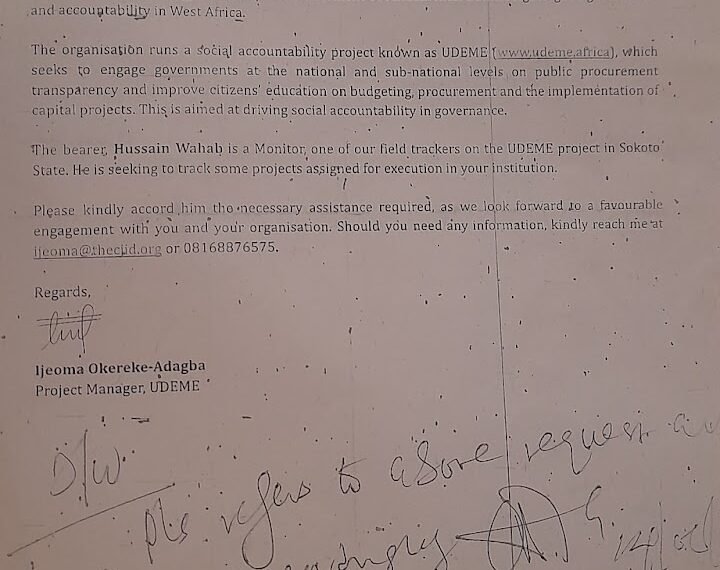 and accountability in West Africa.
The organisation runs a social accountability project known as UDEME (www.udeme.africa), which
seeks to engage governments at the national and sub-national levels on public procurement
transparency and improve citizens' education on budgeting, procurement and the implementation of
capital projects. This is aimed at driving social accountability in governance.
The bearer, Hussain Wahab is a Monitor, one of our field trackers on the UDEME project in Sokoto
State. He is seeking to track some projects assigned for execution in your institution.
Please kindly accord him the necessary assistance required, as we look forward to a favourable
engagement with you and your organisation. Should you need any information, kindly reach me at
ijeoma@thecjid.org or 08168876575.
Regards,
Ijeoma Okereke-Adagba
Project Manager, UDEME
D/W
Pls refers to above request